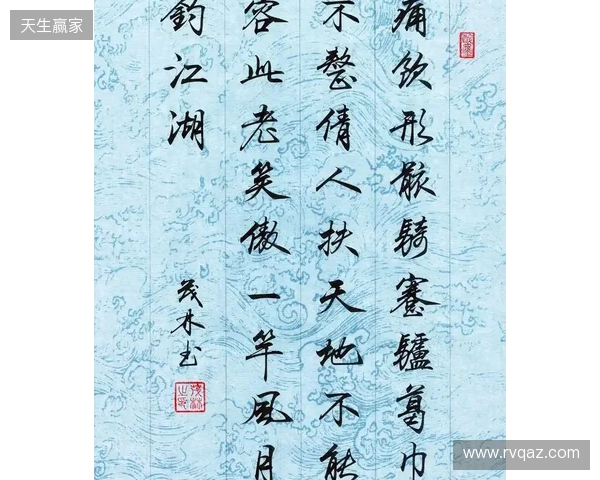 天生赢家
痛飲形骸騎蹇驢葛巾
不整倩人扶天地不能
容此老笑傲一竿風月
釣江湖
茂林书
www.rvqaz.com